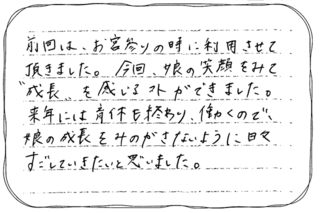 前回は、お宮参りの時に利用させて
頂きました。今回、娘の笑顔をみて
"成長"を感じるコトができました。
来年には育休も終わり、働くので、
娘の成長をみのがさないように日々
すごしていきたいと思いました。